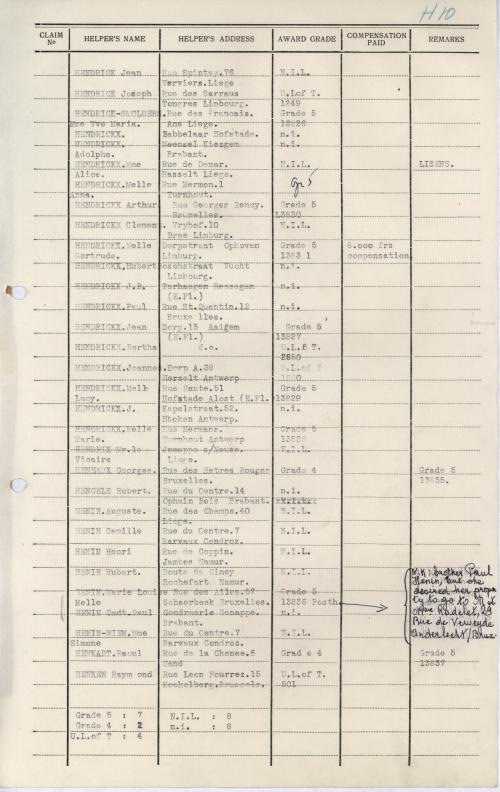 H10
CLAIM Nº HELPER'S NAME HELPER'S ADDRESS AWARD GRADE COMPENSATION PAID REMARKS
HENDRICK Jean Rue Spintay.76 N.I.L.
Verviers.Liege
HENDRICK Joseph Rue des Sarraus U.Lof T.
Tongres Limbourg. 1249
HENDRICK-SMOLDERS. Rue des Francais. Grade 5
Mme Vve Maria. Ans Liege. 13826
HENDRICKX. Babbelaar Hofstade. n.i.
HENDRICKX. Meensel Kiezegem n.i.
Adolphe. Brabant.
HENDRICKX.Mme Rue de Demar. N.I.L. LISENS.
Alice. Hasselt Liege.
HENDRICKX Melle Rue Mermon.1 gr 5
Anna. Turnhout.
HENDRICKX Arthur. Rue Georges Rency. Grade 5
Bruxelles. 13830
HENDRICKX Clement. Vryhof.10 N.I.L.
Bree Limburg.
HENDRICKX.Melle Dorpstraat Ophoven Grade 5 8.000 frs
Gertrude. Limburg. 1383 1 compensation
HENDRICKX.Hubert Boschstraat Vucht n.i.
Limbourg.
HENDRICKX J.B. Terhaegen Hessegem n.i.
(E.Fl.)
HENDRICKX.Paul Rue St.Quentin.12 n.i.
Bruxe lles.
HENDRICKX.Jean Dorp.13 Aaigem Grade 5
(E.Fl.) 13827
HENDRICKX.Bertha d.o. U.L.f T.
2850
HENDRICKX.Joannes. Dorp A.39 U.L.of T
Herselt Antwerp
HENDRICKX.Melle Rue Haute.51 Grade 5
Lucy. Hofstade Alost (E.Fl. 13829
HENDRICKX.J. Kapelstraat.52. n.i.
Hboken Antwerp.
HENDRICKX.Melle Rue Mermans. Grade 5
Marie. Turnhout Antwerp 13828
HENDRIX Mr.le Jemeppe s/Meuse. N.I.L.
Vicaire Liege.
HENEAUX Georges. Rue des Hetres Rouges Grade 4 Grade 5
Bruxelles. 13835.
HENGELS Robert. Rue du Centre.14 n.i.
Ophain Bois Brabant.
HENIN.Auguste. Rue des Champs.40 N.I.L.
Liege.
HENIN Camille Rue du Centre.7 N.I.L.
Barvaux Condroz.
HENIN Henri Rue de Coppin. N.I.L.
Jambes Namur.
HENIN Hubert. Route de Ciney N.I.L.
Rochefort Namur.
HENIN.Marie Louise Rue des Ailes.57 Grade 5
Melle Schaerbeek Bruxelles. 13836 Posth
N.K: brother Paul
Henin, but she
desired her proper
ty to go to M et
Mme Radelet, 29
Rue de Veweyde
Anderlecht/Brux
HENIN Cmdt.Paul Gendrmarie Genappe. n.i.
Brabant.
HENIN-WIEM.Mme Rue du Centre.7 N.I.L.
Simone Barvaux Condroz.
HENKART.Raoul Rue de la Chenee.6 Grad e 4 Grade 5
Gand 13837
HENXEN Raym ond Rue Leon Fourrez.15 U.L.of T.
Koekelberg.Brussels. 501
Grade 5 : 7 N.I.L. : 8
Grade 4 : 2 n.i. : 8
U.L.of T : 4